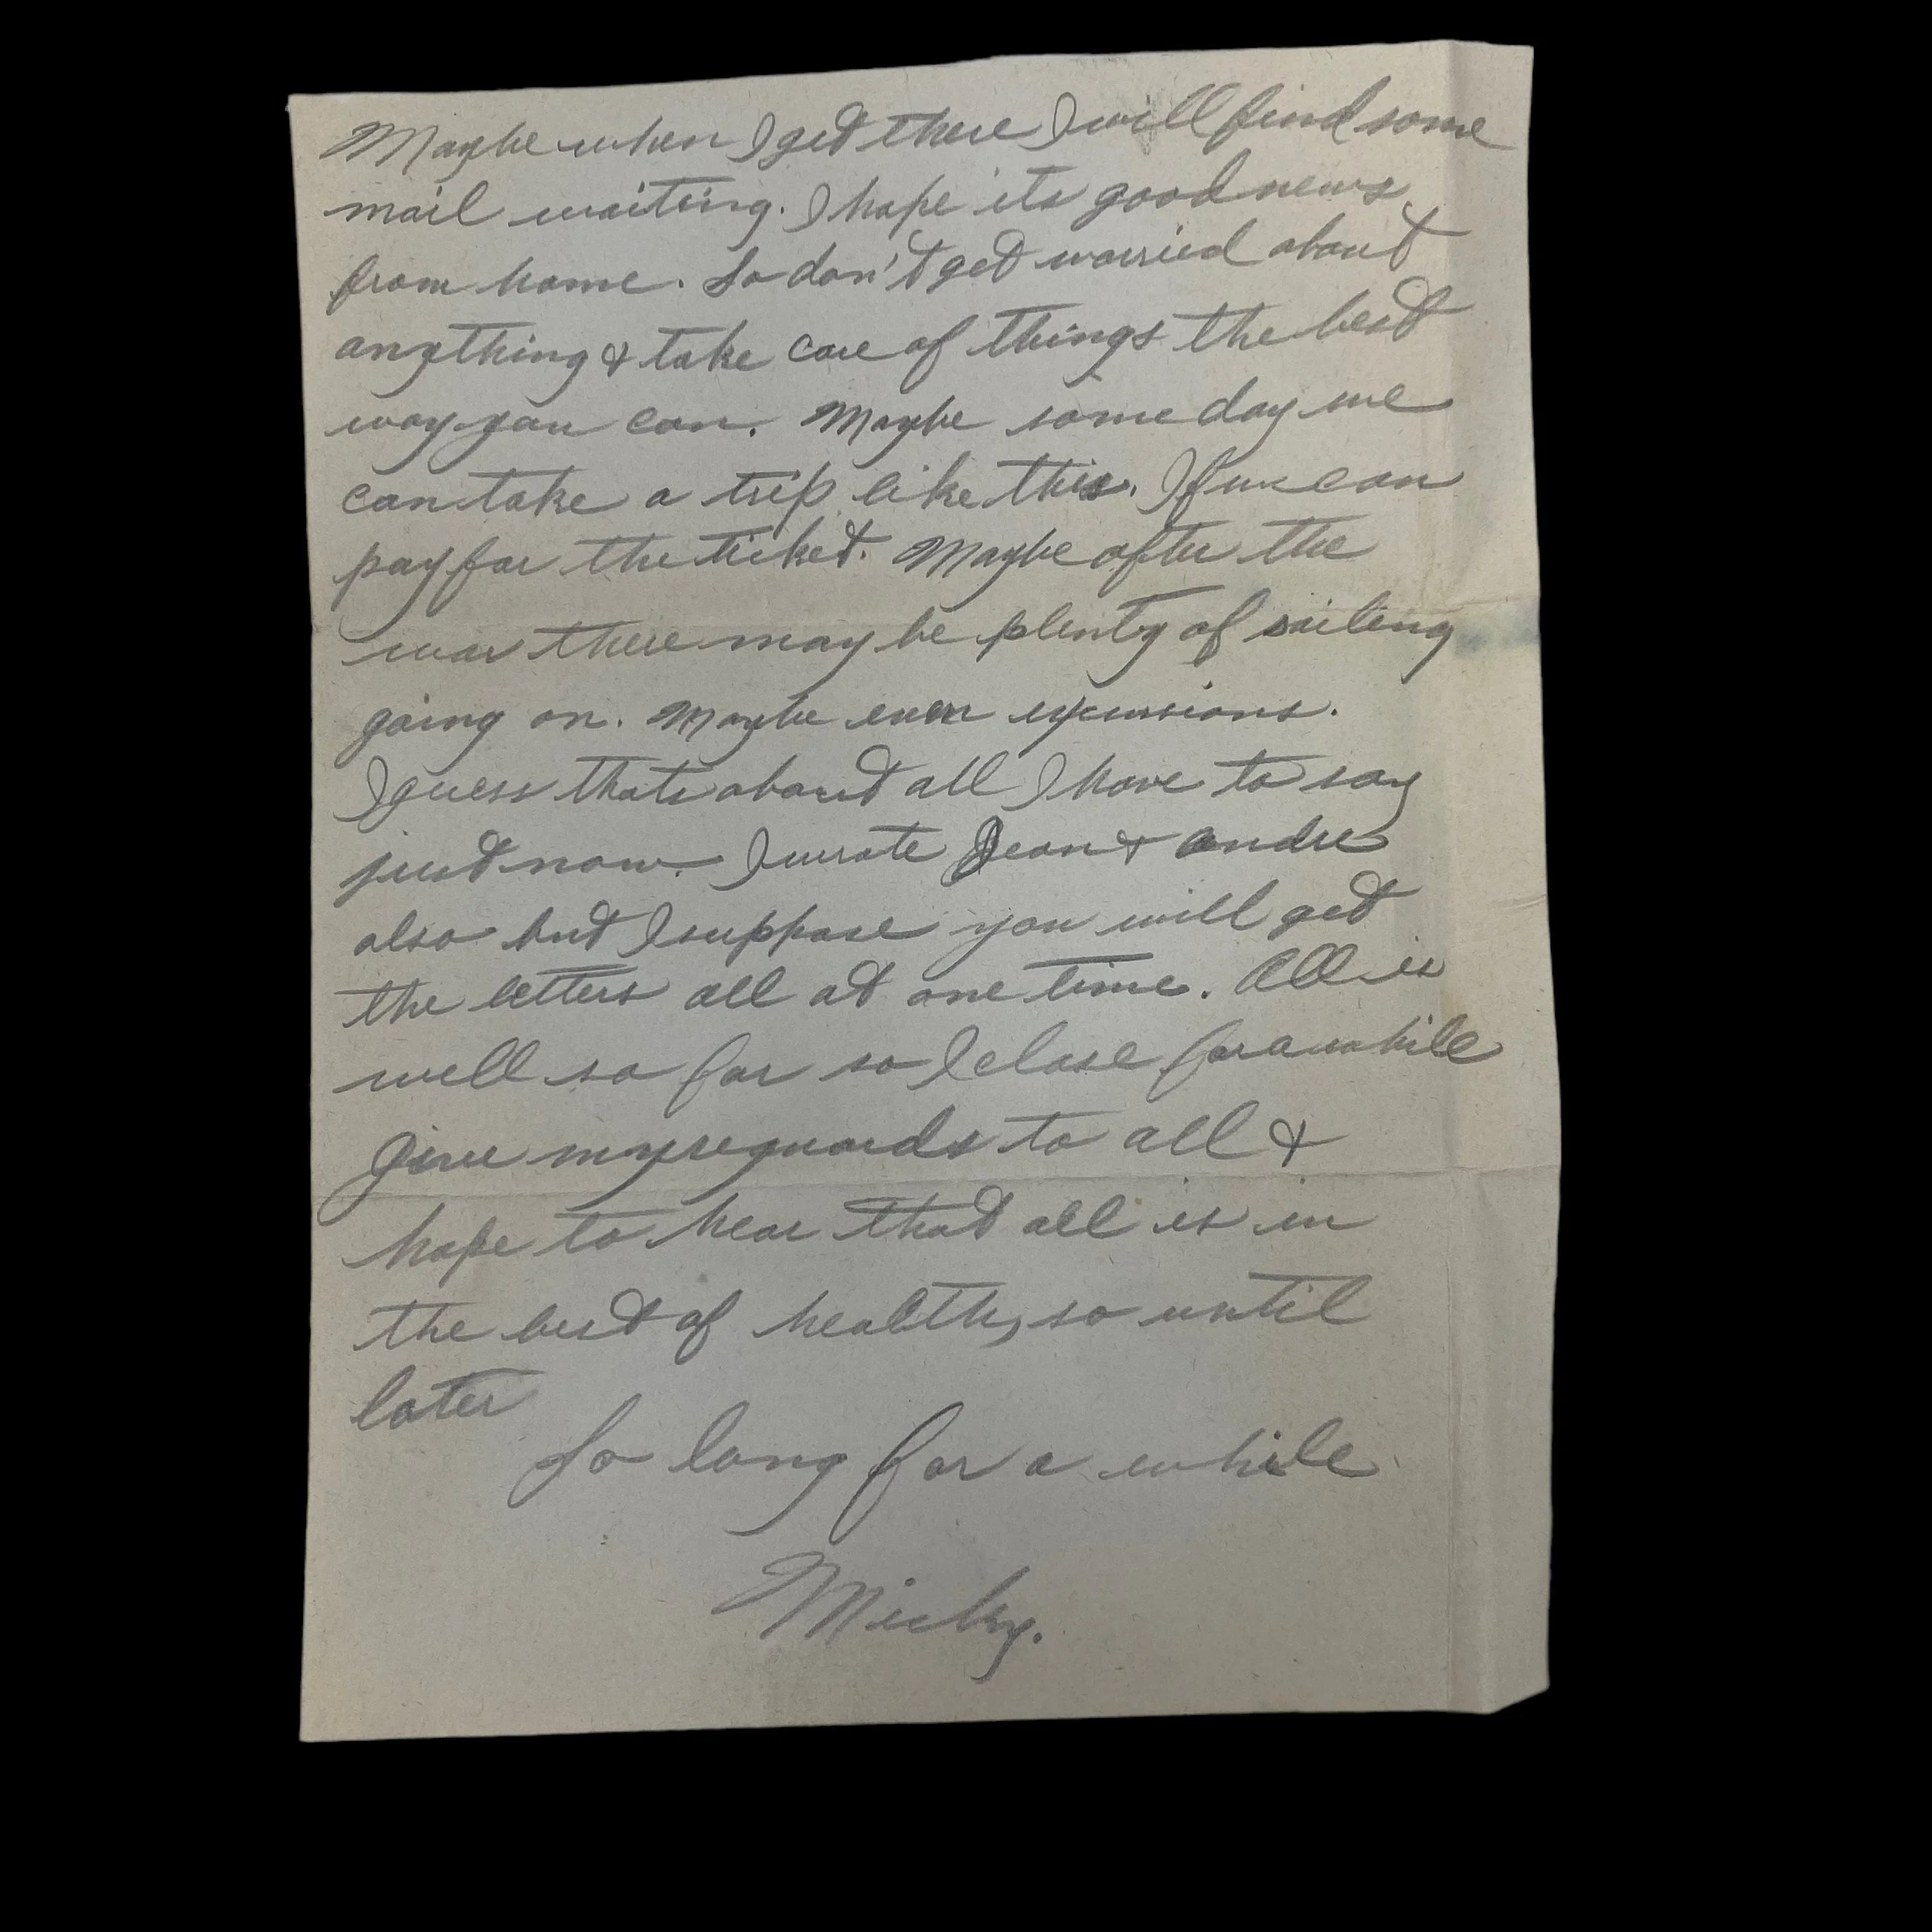 Maybe when I get there I will find some
mail waiting. I hope its good news
from home. So don't get worried about
anything & take care of things the best
way you can. Maybe some day we
can take a trip like this. If we can
pay for the ticket. Maybe after the
war there may be plenty of sailing
going on. Maybe even excursions.
I guess thats about all I have to say
just now. I wrote Jean & Andre
also but I suppose you will get
the letters all at one time. All is
well so far so I close for awhile
Give my reguards to all &
hope to hear that all is in
the best of health, so until
later
So long for a while
Micky.